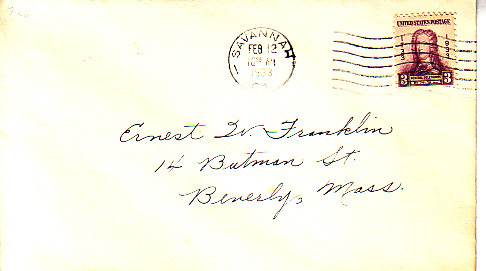 SAVANNAH
FEB 12
10 AM
1933
UNITED STATES POSTAGE
1733
1933
3
3
Ernest W. Franklin
14 Butman St.
Beverly, Mass.